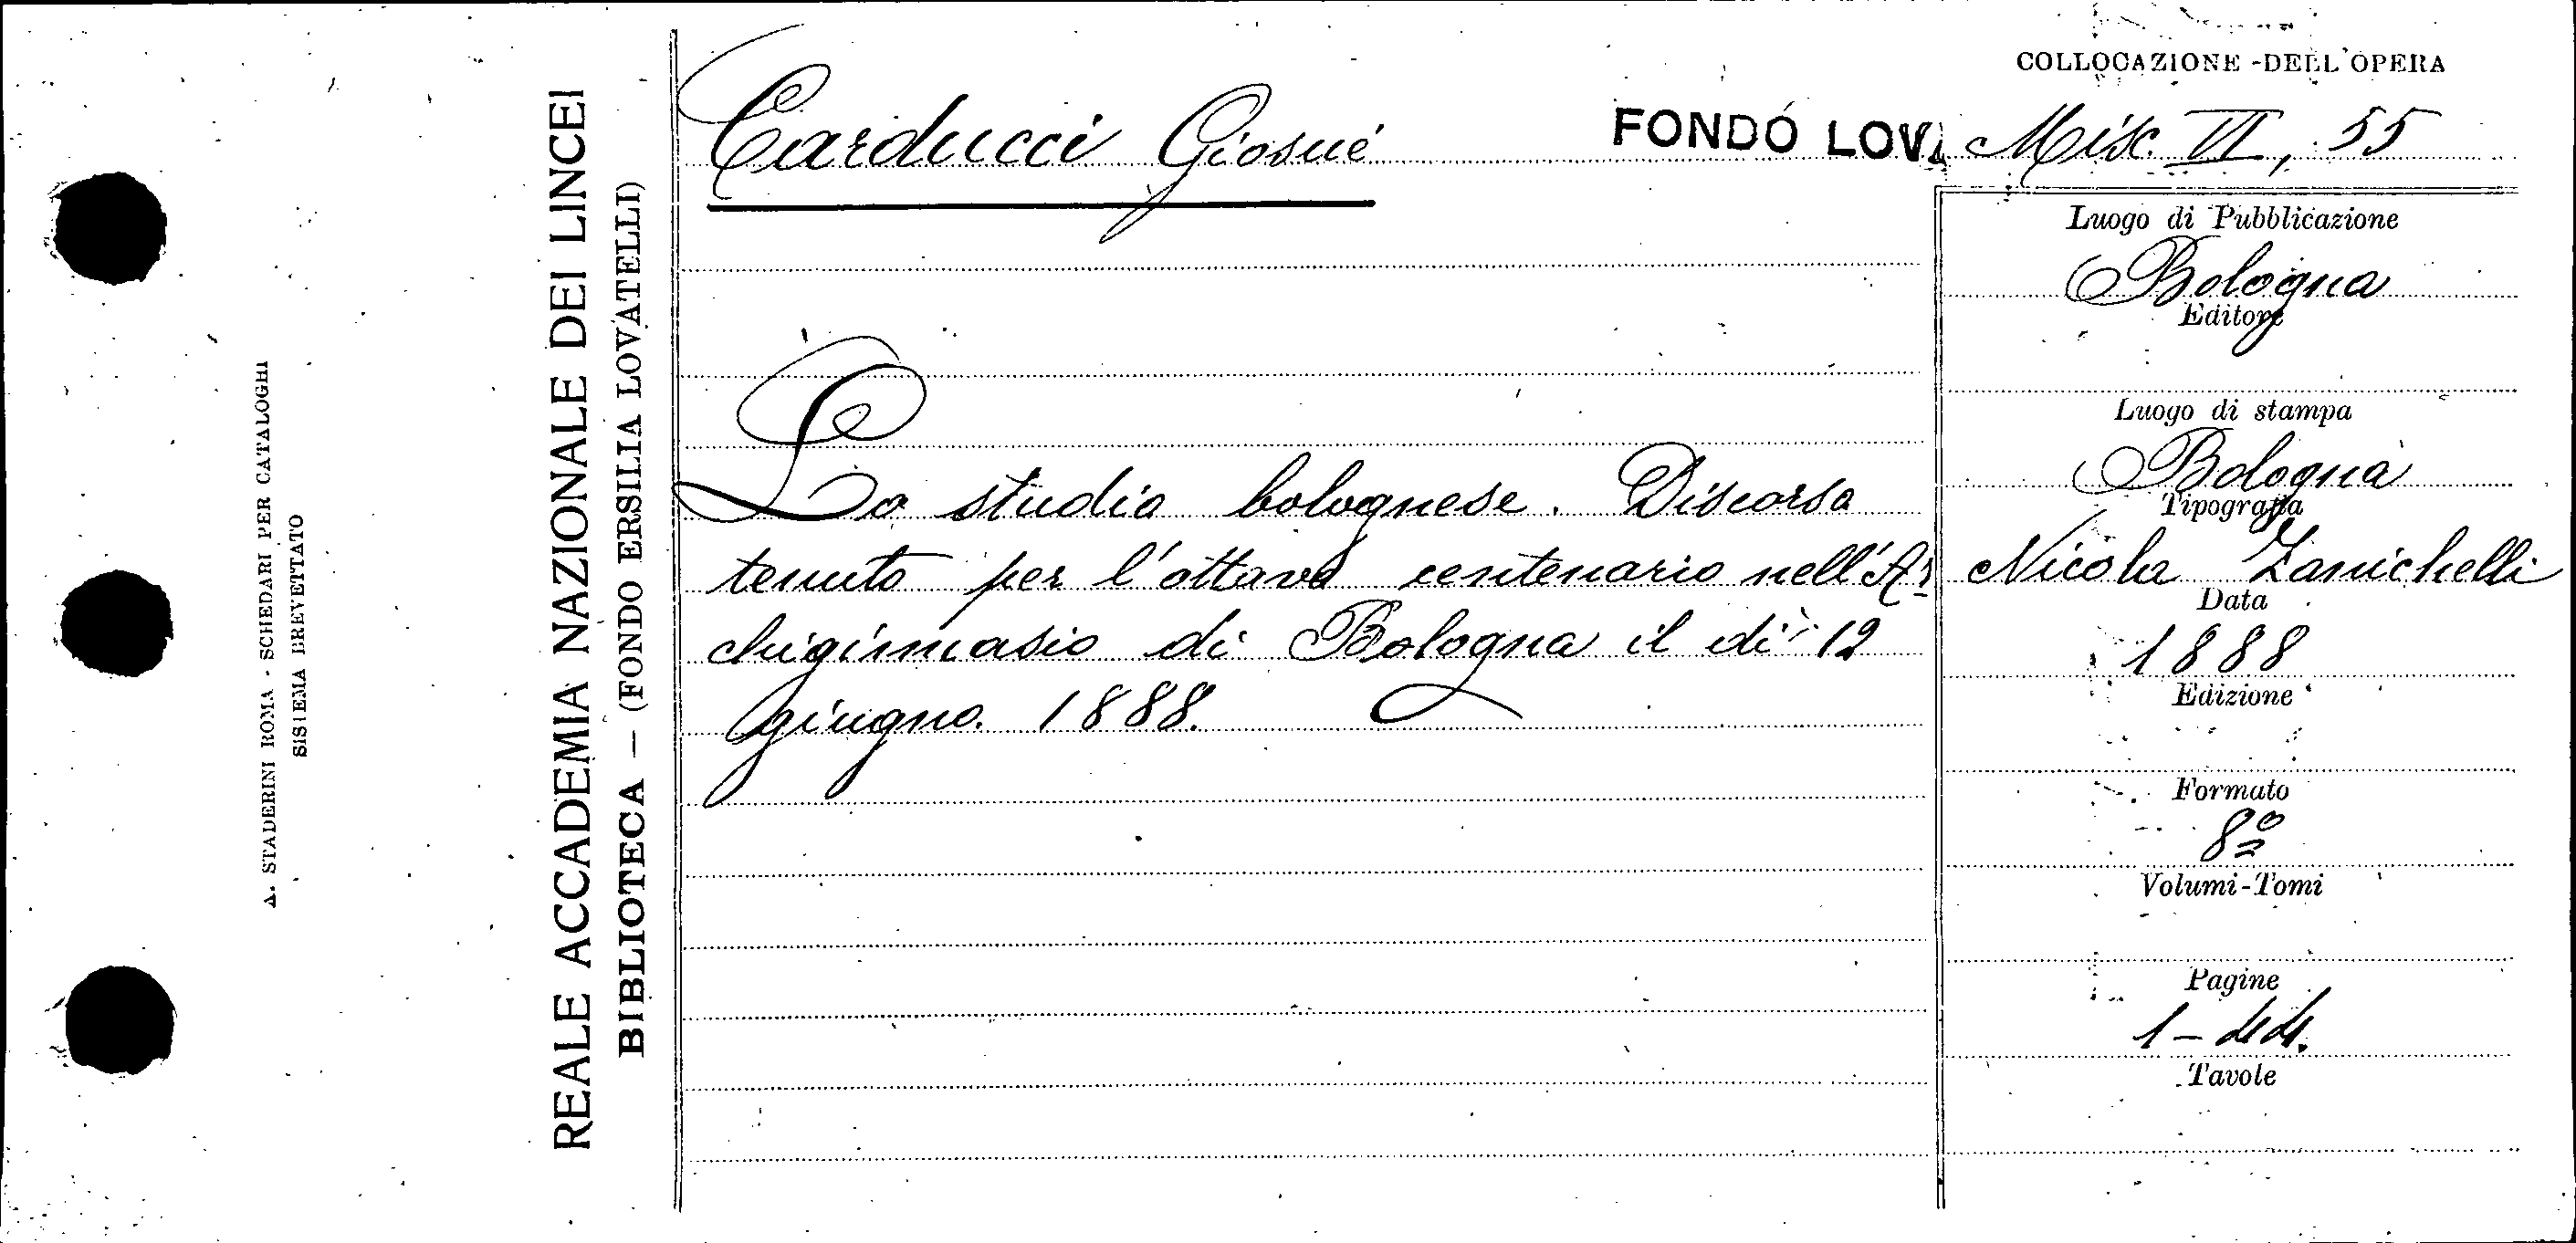 A. STADERINI ROMA - SCHEDARI PER CATALOGHI
SISTEMA BREVETTATO
REALE ACCADEMIA NAZIONALE DEI LINCEI
BIBLIOTECA — (FONDO ERSILIA LOVATELLI)
COLLOCAZIONE DELL'OPERA
Carducci Giosuè
FONDO LOV. Misc. VI, 55
Lo studio bolognese. Discorso
tenuto per l'ottavo centenario nell'Ar
chiginnasio di Bologna il dì 12
giugno. 1888.
Luogo di Pubblicazione
Bologna
Editore
Luogo di stampa
Bologna
Tipografia
Nicola Zanichelli
Data
1888
Edizione
Formato
8º
Volumi-Tomi
Pagine
1-44.
Tavole